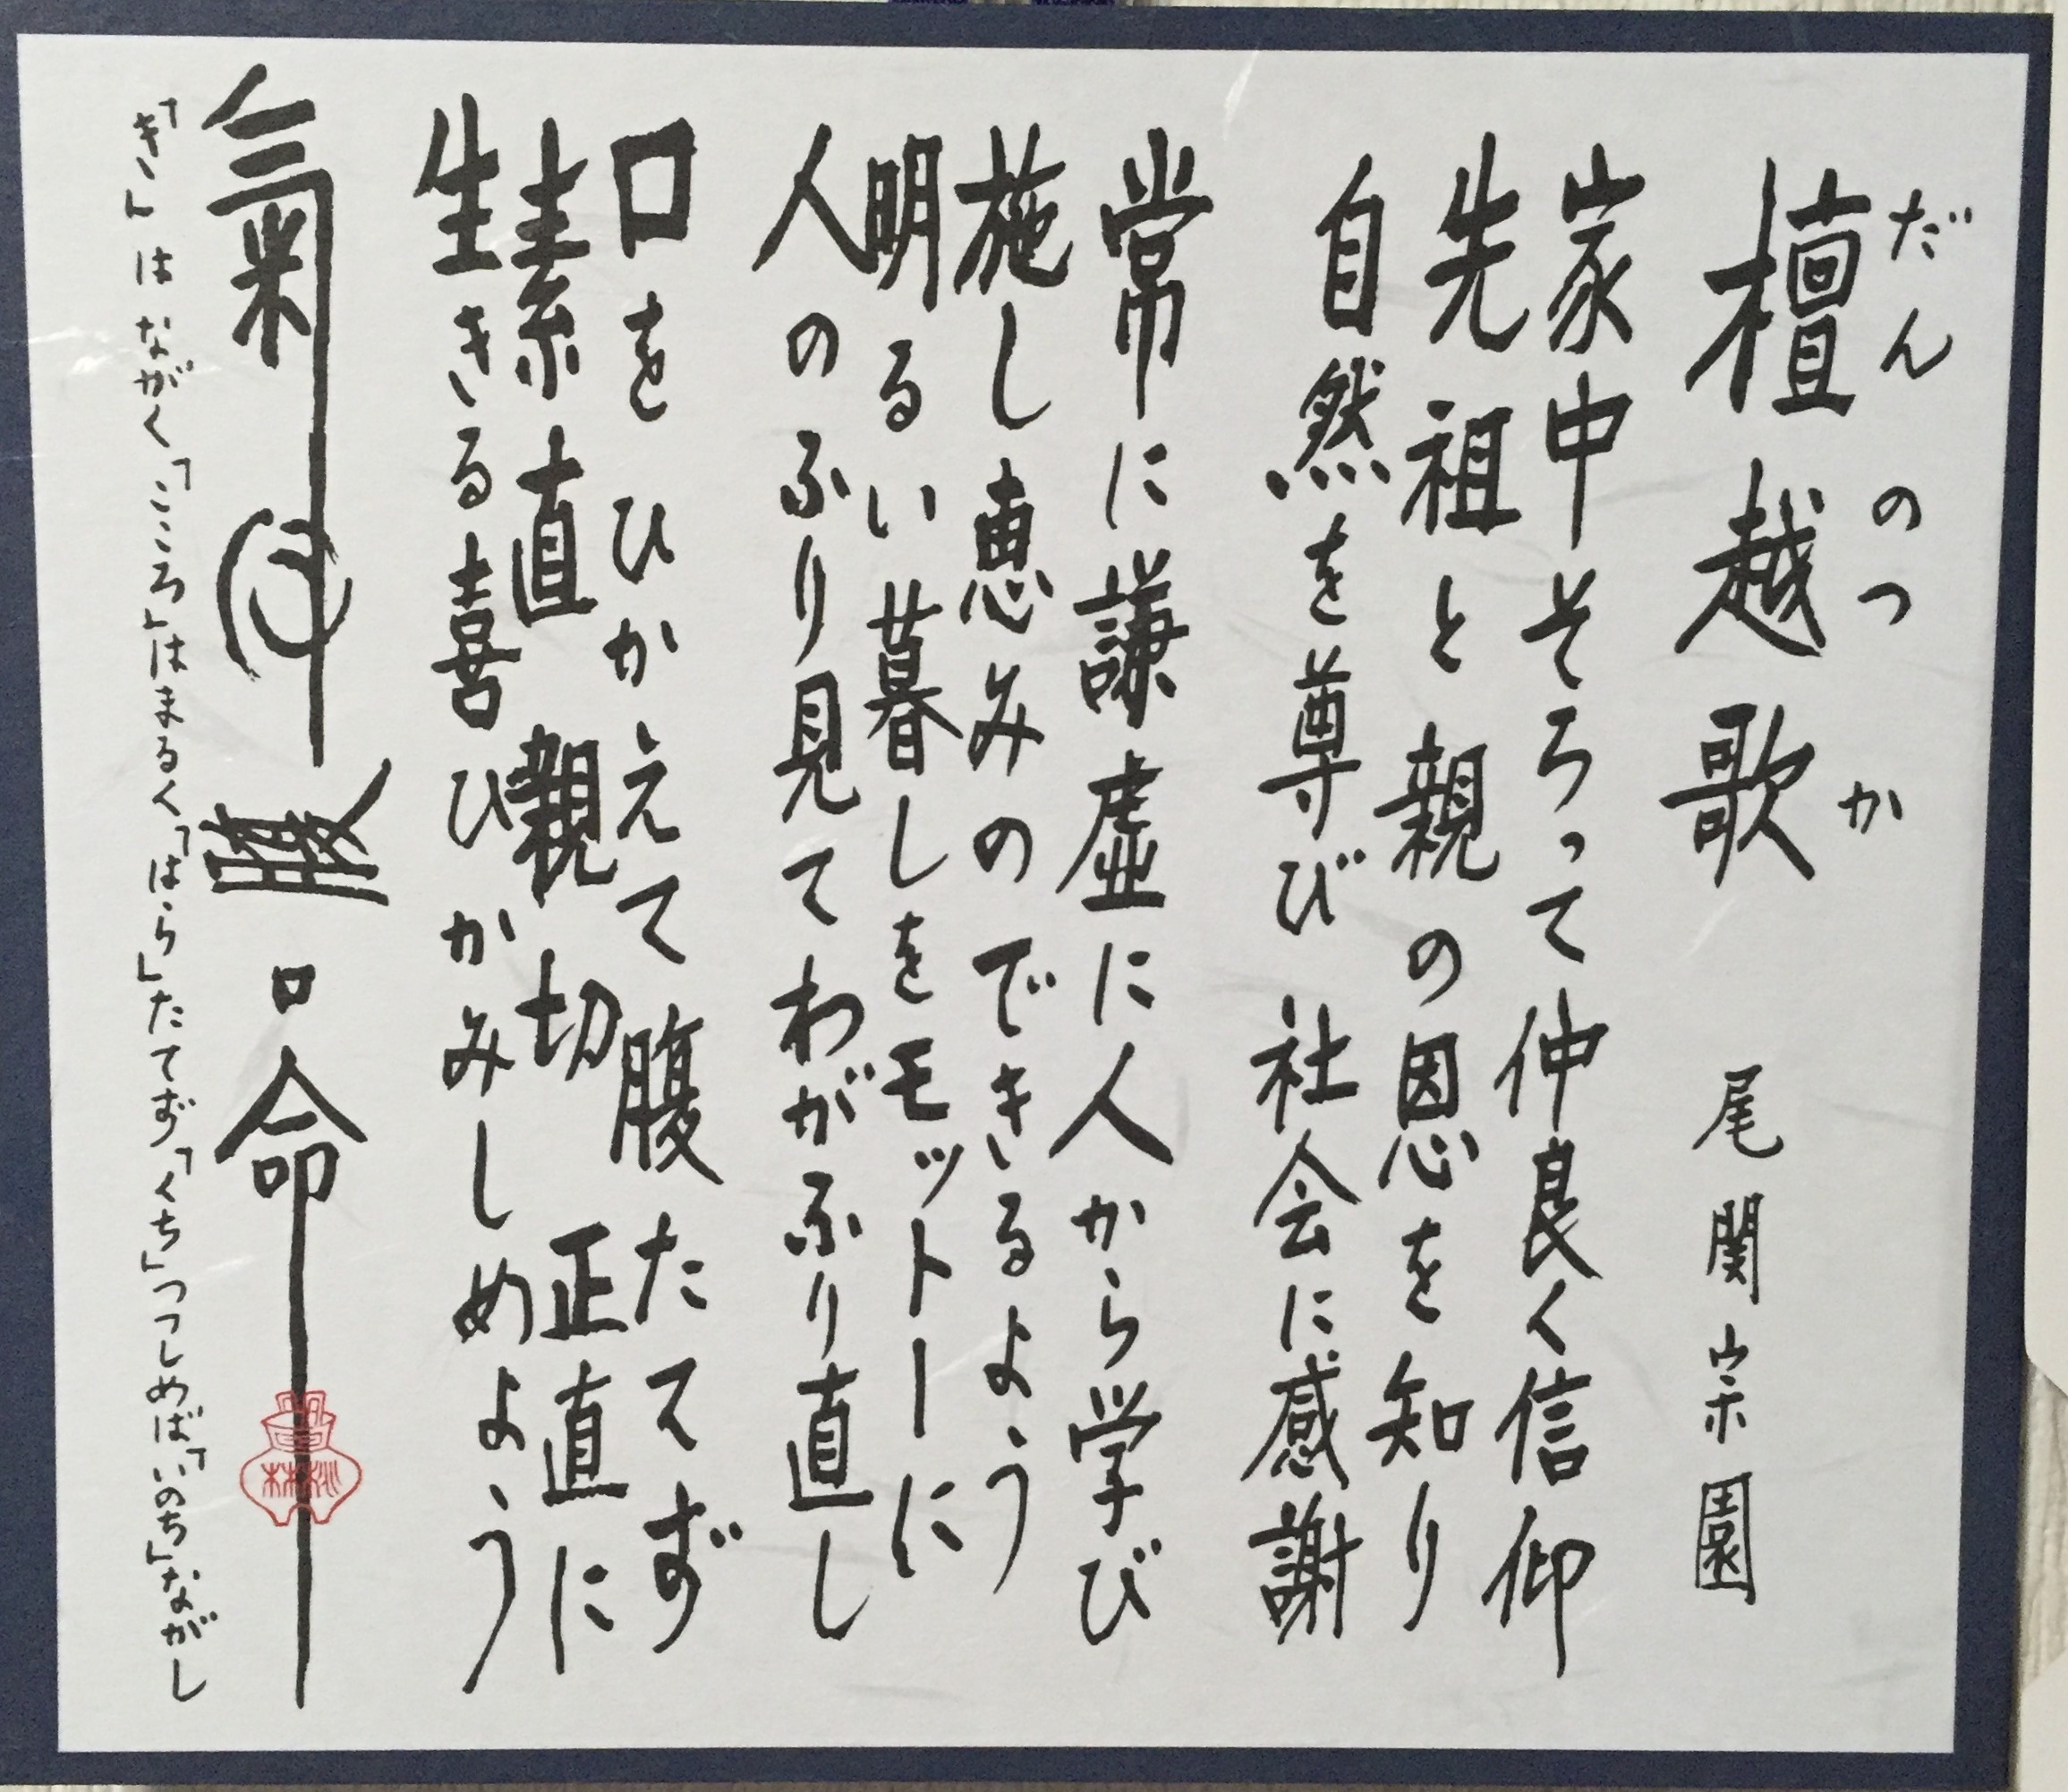 だんのつか
檀越歌 尾関宗園
家中そろって仲良く信仰
先祖と親の恩を知り
自然を尊び 社会に感謝
常に謙虚に人から学び
施し恵みのできるよう
明るい暮しをモットーに
人のふり見てわがふり直し
口をひかえて腹たてず
素直 親切 正直に
生きる喜びかみしめよう
氣心腹口命
「き」はながく「こころ」はまるく「はら」たてず「くち」つつしめば「いのち」ながし